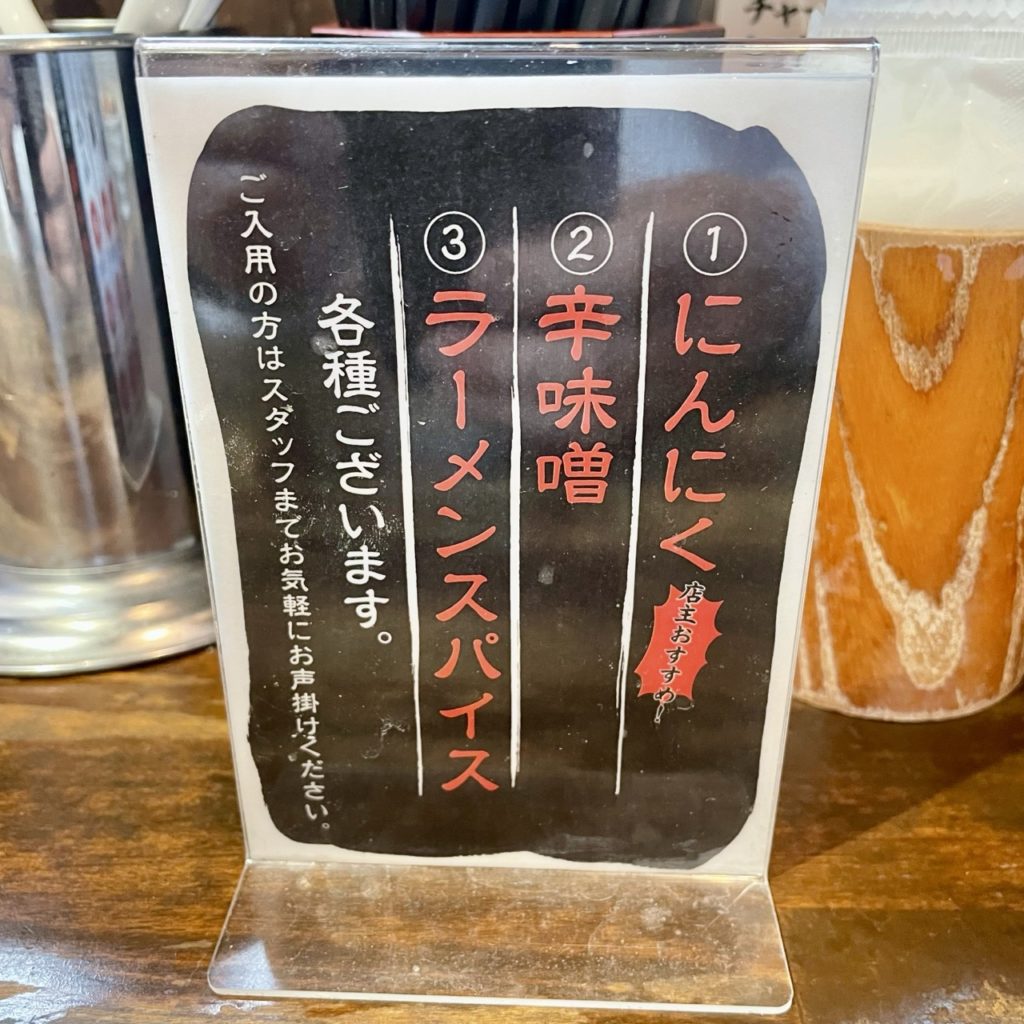 ①にんにく
店主おすすめ!
②辛味噌
③ラーメンスパイス
各種ございます。
ご入用の方はスタッフまでお気軽にお声掛けください。
チャー